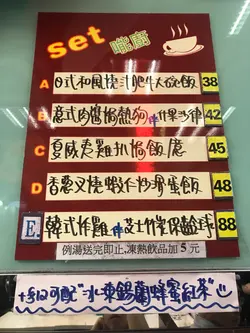 set
職廚
A 日式和風燒汁肥牛大碗飯 38
B 意式肉醬焗熱狗伴什果沙律 42
C 夏威夷雞扒焗飯 45
D 香蔥叉燒蝦仁炒滑蛋飯 48
E. 韓式炸雞伴芝士 88
例湯送完即止,凍熱飲品加5元
+$10可配"小東錫蘭蜂蜜紅茶"